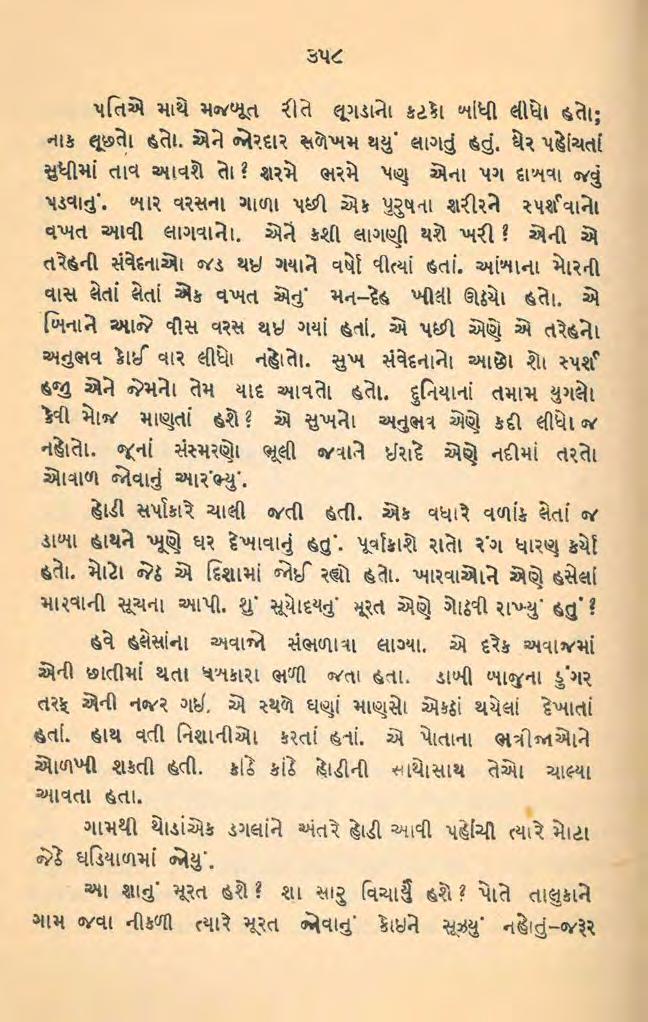 ૩૫૮
પતિએ માથે મજબૂત રીતે લૂગડાનો કટકો બાંધી લીધો હતો;
નાક લૂછતો હતો. એને જોરદાર સળેખમ થયું લાગતું હતું. ઘેર પહોંચતાં
સુધીમાં તાવ આવશે તો? શરમે ભરમે પણ એના પગ દાબવા જવું
પડવાનું. બાર વરસના ગાળા પછી એક પુરુષના શરીરને સ્પર્શવાનો
વખત આવી લાગવાનો. એને કશી લાગણી થશે ખરી? એની એ
તરેહની સંવેદનાઓ જડ થઇ ગયાને વર્ષો વીત્યાં હતાં. આંબાના મોરની
વાસ લેતાં લેતાં એક વખત એનું મન–દેહ ખીલી ઊઠ્યો હતો. એ
બિનાને આજે વીસ વરસ થઇ ગયાં હતાં. એ પછી એણે એ તરેહનો
અનુભવ કોઈ વાર લીધો નહોતો. સુખ સંવેદનાનો આછો શો સ્પર્શ
હજુ એને જેમનો તેમ યાદ આવતો હતો. દુનિયાનાં તમામ યુગલો
કેવી મોજ માણતાં હશે? એ સુખનો અનુભવ એણે કદી લીધો જ
નહોતો. જૂનાં સંસ્મરણો ભૂલી જવાને ઈરાદે એણે નદીમાં તરતો
ઓવાળ જોવાનું આરંભ્યું.
હોડી સર્પાકારે ચાલી જતી હતી. એક વધારે વળાંક લેતાં જ
ડાબા હાથને ખૂણે ઘર દેખાવાનું હતું. પૂર્વાકાશે રાતો રંગ ધારણ કર્યો
હતો. મોટો જેઠ એ દિશામાં જોઈ રહ્યો હતો. ખારવાઓને એણે હલેસાં
મારવાની સૂચના આપી. શું સૂર્યોદયનું મૂરત એણે ગોઠવી રાખ્યું હતું?
હવે હલેસાંના અવાજો સંભળાવા લાગ્યા. એ દરેક અવાજમાં
એની છાતીમાં થતા ધબકારા ભળી જતા હતા. ડાબી બાજુના ડુંગર
તરફ એની નજર ગઇ. એ સ્થળે ઘણાં માણસો એકઠાં થયેલાં દેખાતાં
હતાં. હાથ વતી નિશાનીઓ કરતાં હતાં. એ પોતાના ભત્રીજાઓને
ઓળખી શકતી હતી. કાંઠે કાંઠે હોડીની સાથોસાથ તેઓ ચાલ્યા
આવતા હતા.
ગામથી થોડાંએક ડગલાંને અંતરે હોડી આવી પહોંચી ત્યારે મોટા
જેઠે ઘડિયાળમાં જોયું.
આ શાનું મૂરત હશે? શા સારુ વિચાર્યું હશે? પોતે તાલુકાને
ગામ જવા નીકળી ત્યારે મૂરત જોવાનું કોઇને સૂઝયું નહોતું–જરૂર